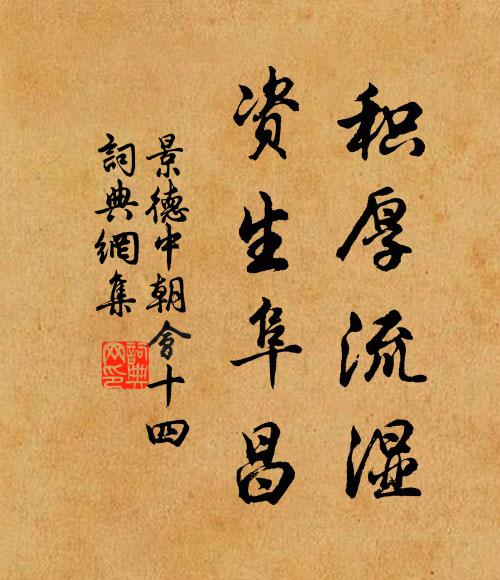 积厚流湿
资生阜昌
景德中朝会十四
詞典網集
詞典網印